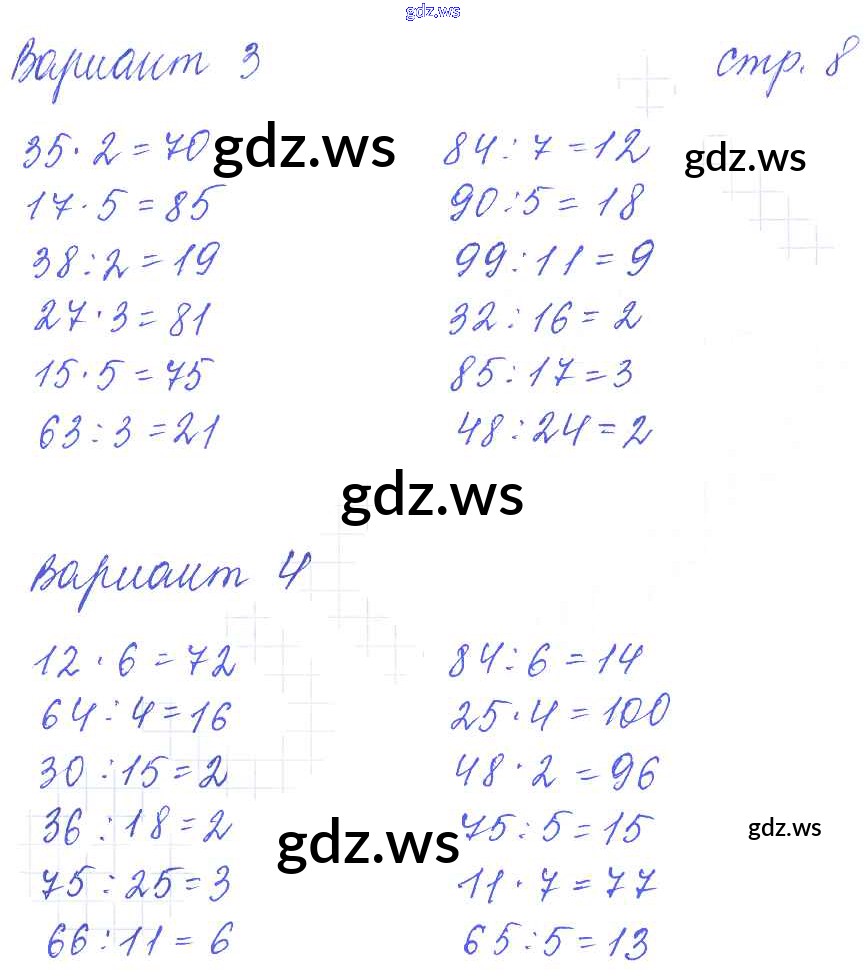 gdz.ws
Вариант 3 стр. 8
35·2=70 84:7=12
gdz.ws gdz.ws
17·5=85 90:5=18
38:2=19 99:11=9
27·3=81 32:16=2
15·5=75 85:17=3
63:3=21 48:24=2
gdz.ws
Вариант 4
12·6=72 84:6=14
64:4=16 25·4=100
30:15=2 48·2=96
36:18=2 75:5=15
gdz.ws gdz.ws
75:25=3 11·7=77
66:11=6 65:5=13